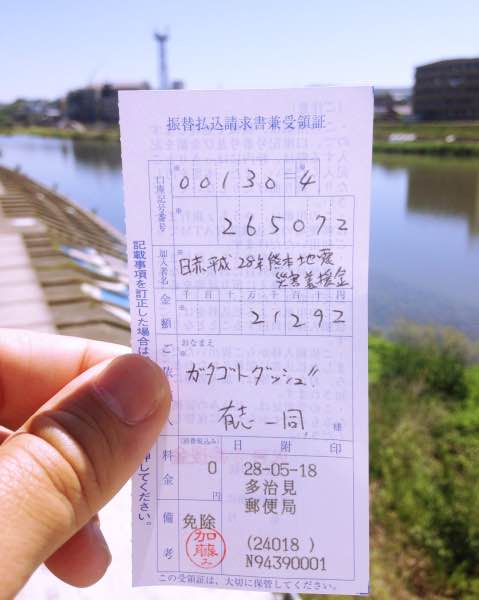 振替払込請求書兼受領証
口座記号番号
00130=4
265072
加入者名
日赤平成28年熊本地震
災害義援金
金額
千百十万千百十円
21292
おなまえ
ご依 人
ガタゴトダッシュ〃
有志一同
様
料金
(消費税込み)
0
円
日附印
28-05-18
多治見
郵便局
(24018 )
N94390001
備考
免除
加藤み
記載事項を訂正した場合は
押してください。
この受領証は、大切に保管してください。